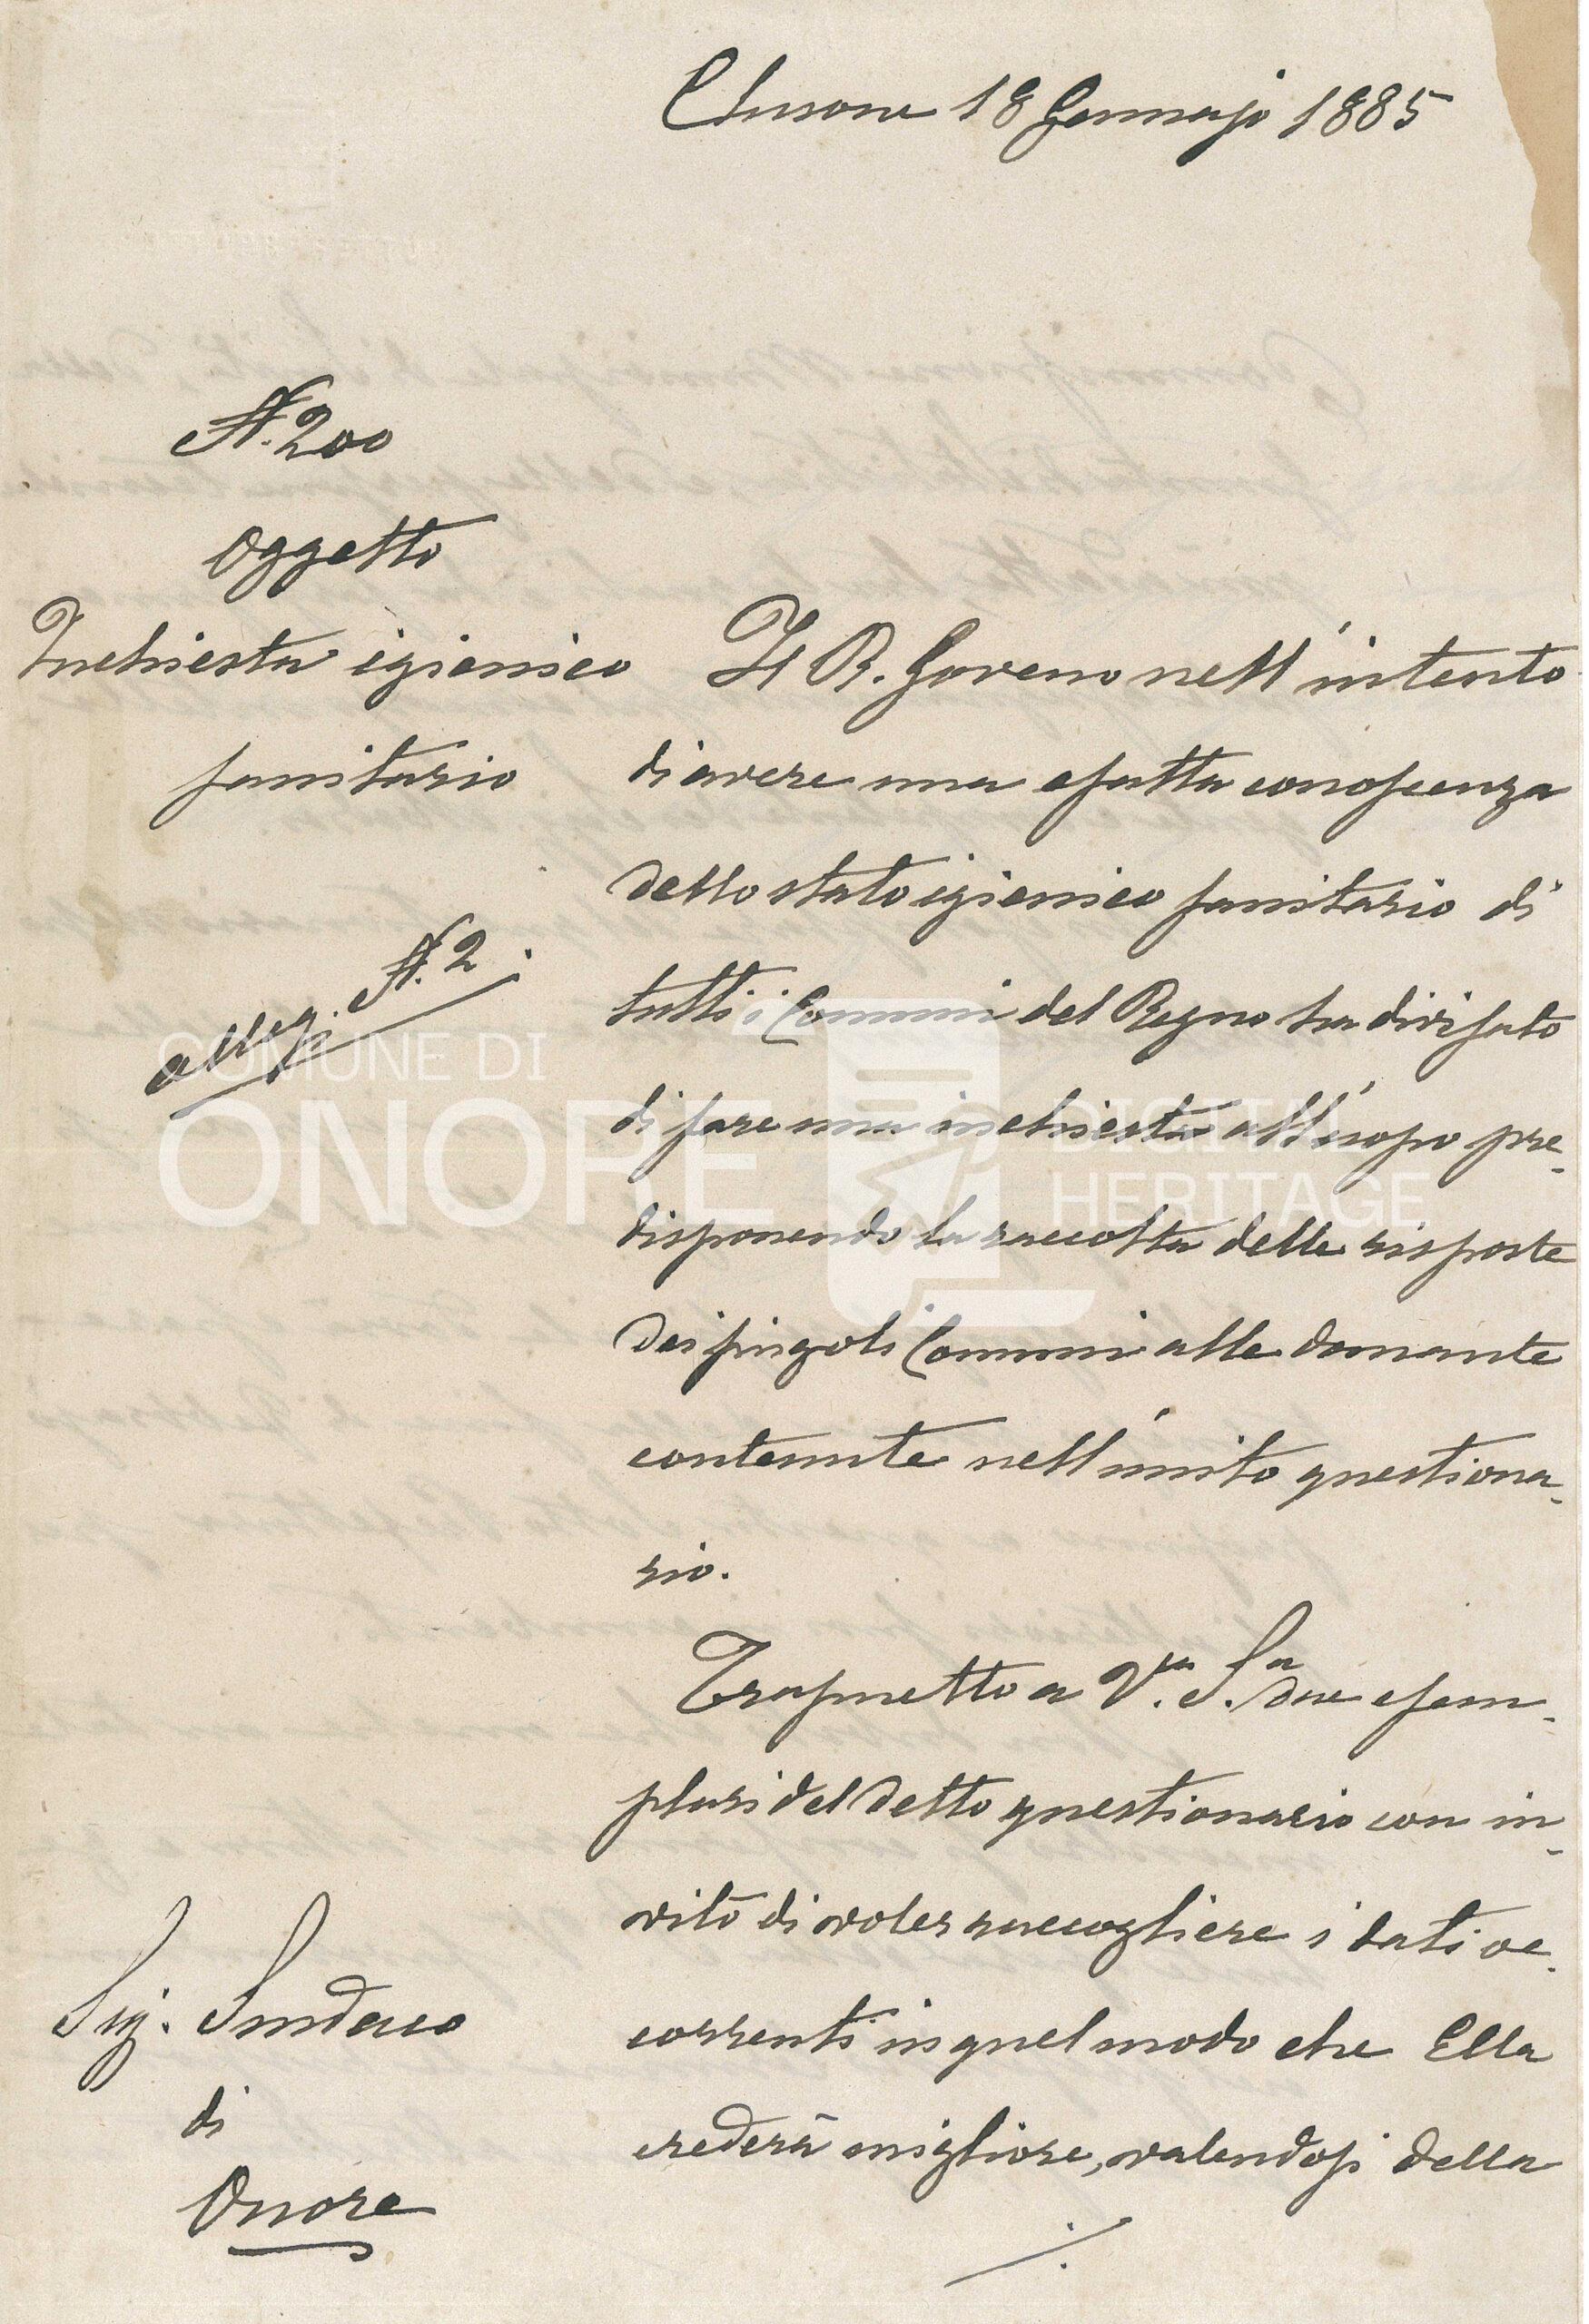 Clusone 18 Gennajo 1885
N. 200
Oggetto
Inchiesta igienico
sanitario
alleg. N. 2
Il R. Governo nell'intento
di avere una esatta conoscenza
dello stato igienico sanitario di
tutti i Comuni del Regno ha divisato
di fare una inchiesta all'uopo pre-
disponendo la raccolta delle risposte
dei singoli Comuni alle domante
contenute nell'unito questiona-
rio.
Trasmetto a V.ra S.ria due esem-
plari del detto questionario con in-
vito di voler raccogliere i dati oc-
correnti in quel modo che Ella
crederà migliore, valendosi della
./.
Sig. Sindaco
di
Onore
COMUNE DI
ONORE
DIGITAL
HERITAGE